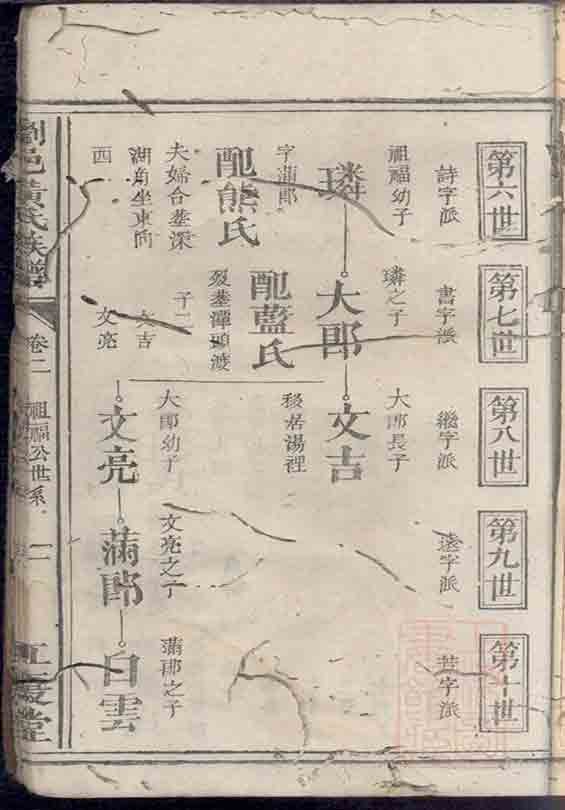 第六世
第七世
第八世
第九世
第十世
詩字派
書字派
繼字派
遠字派
祖福幼子
璘
字蒲郎
配熊氏
夫婦合塟深
湖角坐東向
西
璘之子
大郎
配藍氏
塟潭頭渡
子二
文吉
文亮
大郎長子
文吉
移居湯裡
大郎幼子
文亮
文亮之子
蒲郎
蒲郎之子
白雲
劉邑黃氏族譜
卷二
祖福公世系
二
江夏堂